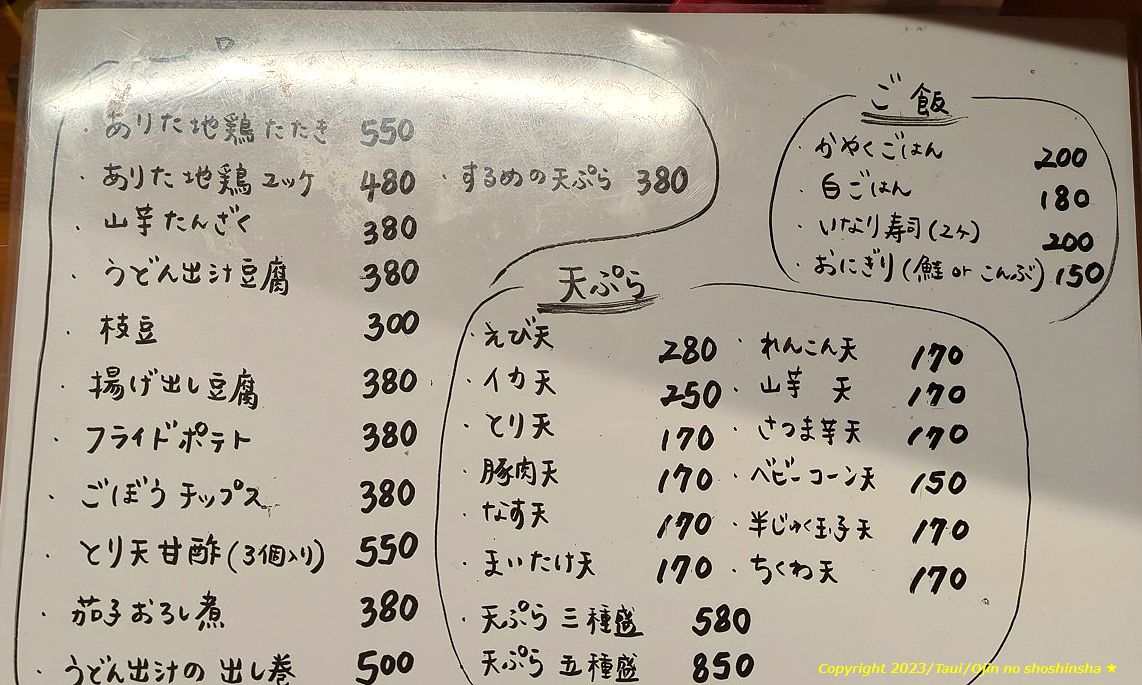 ・ありた地鶏たたき 550
・ありた地鶏ユッケ 480
・山芋たんざく 380
・うどん出汁豆腐 380
・枝豆 300
・揚げ出し豆腐 380
・フライドポテト 380
・ごぼうチップス 380
・とり天甘酢(3個入り) 550
・茄子おろし煮 380
・うどん出汁の出し巻 500
・するめの天ぷら 380
ご飯
・かやくごはん 200
・白ごはん 180
・いなり寿司(2ヶ) 200
・おにぎり(鮭 or こんぶ) 150
天ぷら
・えび天 280
・イカ天 250
・とり天 170
・豚肉天 170
・なす天 170
・まいたけ天 170
・天ぷら 三種盛 580
・天ぷら 五種盛 850
・れんこん天 170
・山芋 天 170
・さつま芋天 170
・ベビーコーン天 150
・半じゅく玉子天 170
・ちくわ天 170
Copyright 2023/Taui/Ojin no shoshinsha ★